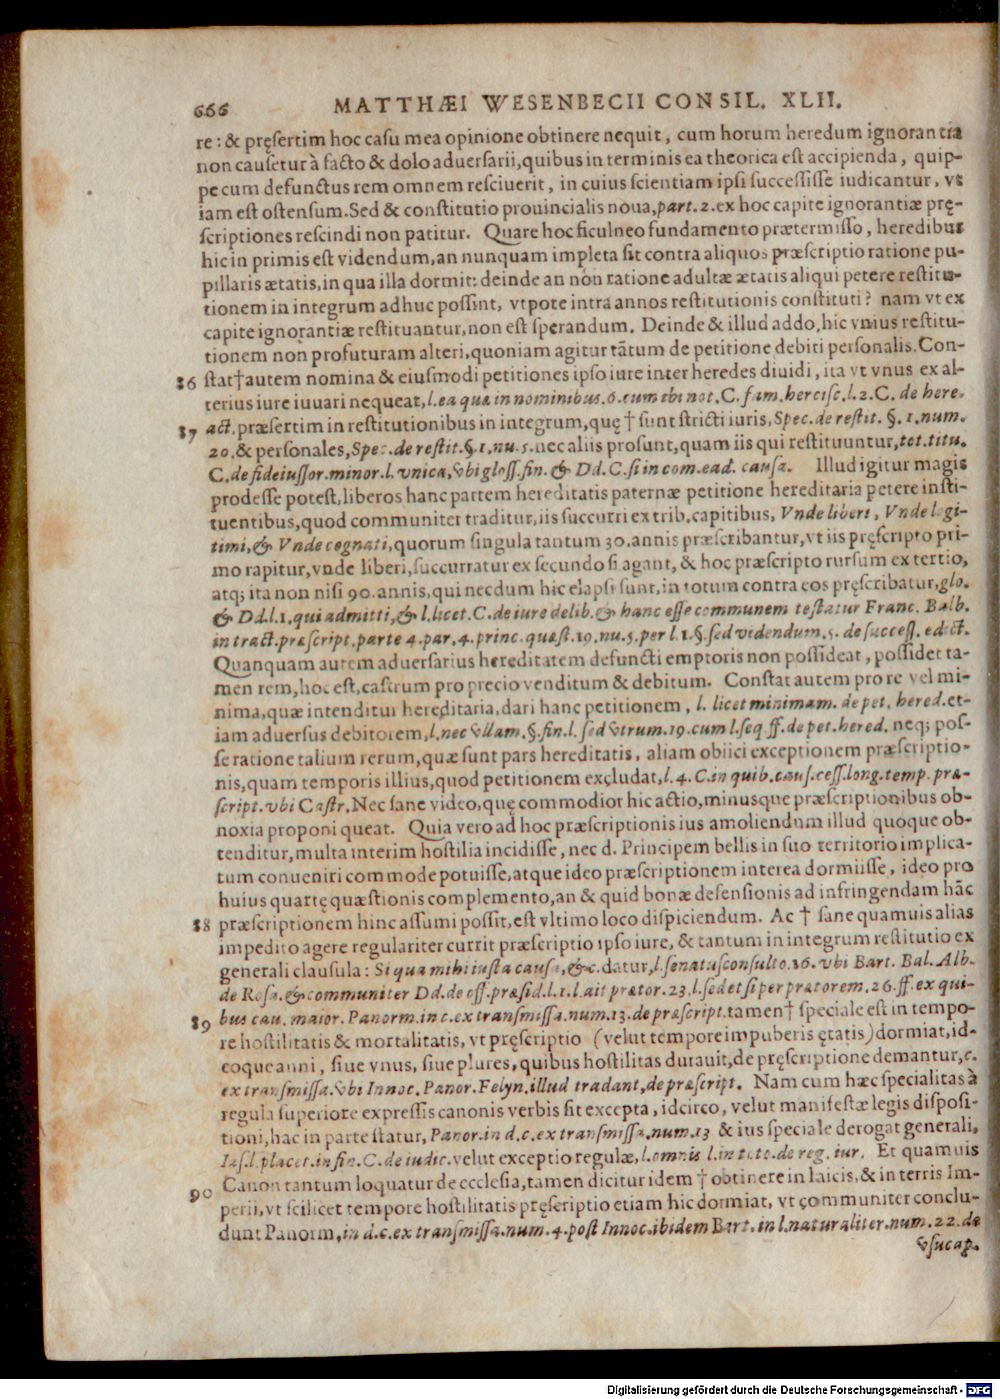 666 MATTHÆI WESENBECII CONSIL. XLII.
re: & pręſertim hoc caſu mea opinione obtinere nequit, cum horum heredum ignorantia
non cauſetur à facto & dolo aduerſarij, quibus in terminis ea theorica eſt accipienda, quip-
pe cum defunctus rem omnem reſciuerit, in cuius ſcientiam ipſi ſucceſſiſſe iudicantur, vt
iam eſt oſtenſum. Sed & conſtitutio prouincialis noua, part. 2. ex hoc capite ignorantiæ prę-
ſcriptiones reſcindi non patitur. Quare hoc ficulneo fundamento prætermiſſo, heredibus
hic in primis eſt videndum, an nunquam impleta ſit contra aliquos præſcriptio ratione pu-
pillaris ætatis, in qua illa dormit: deinde an non ratione adultæ ætatis aliqui petere reſtitu-
tionem in integrum adhuc poſſint, vtpote intra annos reſtitutionis conſtituti? nam vt ex
capite ignorantiæ reſtituantur, non eſt ſperandum. Deinde & illud addo, hic vnius reſtitu-
tionem non profuturam alteri, quoniam agitur tãtum de petitione debiti perſonalis. Con-
86 ſtat † autem nomina & eiuſmodi petitiones ipſo iure inter heredes diuidi, ita vt vnus ex al-
terius iure iuuari nequeat, l. ea quæ in nominibus. 6. cum ibi not. C. fam. herciſc. l. 2. C. de here.
87 act. præſertim in reſtitutionibus in integrum, quę † ſunt ſtricti iuris, Spec. de reſtit. §. 1. num.
20. & perſonales, Spec. de reſtit. §. 1. nu. 5. nec aliis proſunt, quam iis qui reſtituuntur, tot. titu.
C. de fideiuſſor. minor. l. vnica, vbi gloſſ. fin. & Dd. C. ſi in com. ead. cauſa. Illud igitur magis
prodeſſe poteſt, liberos hanc partem hereditatis paternæ petitione hereditaria petere inſti-
tuentibus, quod communiter traditur, iis ſuccurri ex trib. capitibus, Vnde liberi, Vnde legi-
timi, & Vnde cognati, quorum ſingula tantum 30. annis præſcribantur, vt iis pręſcripto pri-
mo rapitur, vnde liberi, ſuccurratur ex ſecundo ſi agant, & hoc præſcripto rurſum ex tertio,
atq; ita non niſi 90. annis, qui necdum hic elapſi ſunt, in totum contra eos pręſcribatur, glo.
& Dd. l. 1. qui admitti, & l. licet. C. de iure delib. & hanc eſſe communem teſtatur Franc. Balb.
in tract. præſcript. parte 4. par. 4. princ. quæſt. 10. nu. 5. per l. 1. §. ſed videndum. 5. de ſucceſſ. edict.
Quanquam autem aduerſarius hereditatem defuncti emptoris non poſſideat, poſſidet ta-
men rem, hoc eſt, caſtrum pro precio venditum & debitum. Conſtat autem pro re vel mi-
nima, quæ intenditur hereditaria, dari hanc petitionem, l. licet minimam. de pet. hered. et-
iam aduerſus debitorem, l. nec vllam. §. fin. l. ſed vtrum. 19. cum l. ſeq. ff. de pet. hered. neq; poſ-
ſe ratione talium rerum, quæ ſunt pars hereditatis, aliam obiici exceptionem præſcriptio-
nis, quam temporis illius, quod petitionem excludat, l. 4. C. in quib. cauſ. ceſſ. long. temp. præ-
ſcript. vbi Caſtr. Nec ſane video, quę commodior hic actio, minusque præſcriptionibus ob-
noxia proponi queat. Quia vero ad hoc præſcriptionis ius amoliendum illud quoque ob-
tenditur, multa interim hoſtilia incidiſſe, nec d. Principem bellis in ſuo territorio implica-
tum conueniri commode potuiſſe, atque ideo præſcriptionem interea dormiiſſe, ideo pro
huius quartę quæſtionis complemento, an & quid bonæ defenſionis ad infringendam hãc
88 præſcriptionem hinc aſſumi poſſit, eſt vltimo loco diſpiciendum. Ac † ſane quamuis alias
impedito agere regulariter currit præſcriptio ipſo iure, & tantum in integrum reſtitutio ex
generali clauſula: Si qua mihi iuſta cauſa, &c. datur, l. ſenatuſconſulto. 16. vbi Bart. Bal. Alb.
de Roſa. & communiter Dd. de off. præſid. l. 1. l. ait prætor. 23. l. ſed et ſi per prætorem. 26. ff. ex qui-
89 bus cau. maior. Panorm. in c. ex tranſmiſſa. num. 13. de præſcript. tamen † ſpeciale eſt in tempo-
re hoſtilitatis & mortalitatis, vt pręſcriptio (velut tempore impuberis ętatis) dormiat, id-
eoque anni, ſiue vnus, ſiue plures, quibus hoſtilitas durauit, de pręſcriptione demantur, c.
ex tranſmiſſa. vbi Innoc. Panor. Felyn. illud tradant, de præſcript. Nam cum hæc ſpecialitas à
regula ſuperiore expreſſis canonis verbis ſit excepta, idcirco, velut manifeſtæ legis diſpoſi-
tioni, hac in parte ſtatur, Panor. in d. c. ex tranſmiſſa. num. 13 & ius ſpeciale derogat generali,
Iaſ. l. placet. in fin. C. de iudic. velut exceptio regulæ, l. omnis l. in toto. de reg. iur. Et quamuis
90 Canon tantum loquatur de eccleſia, tamen dicitur idem † obtinere in laicis, & in terris Im-
perii, vt ſcilicet tempore hoſtilitatis pręſcriptio etiam hic dormiat, vt communiter conclu-
dunt Panorm, in d. c. ex tranſmiſſa. num. 4. poſt Innoc. ibidem Bart. in l. naturaliter. num. 22. de
vſucap.
Digitalisierung gefördert durch die Deutsche Forschungsgemeinschaft - DFG